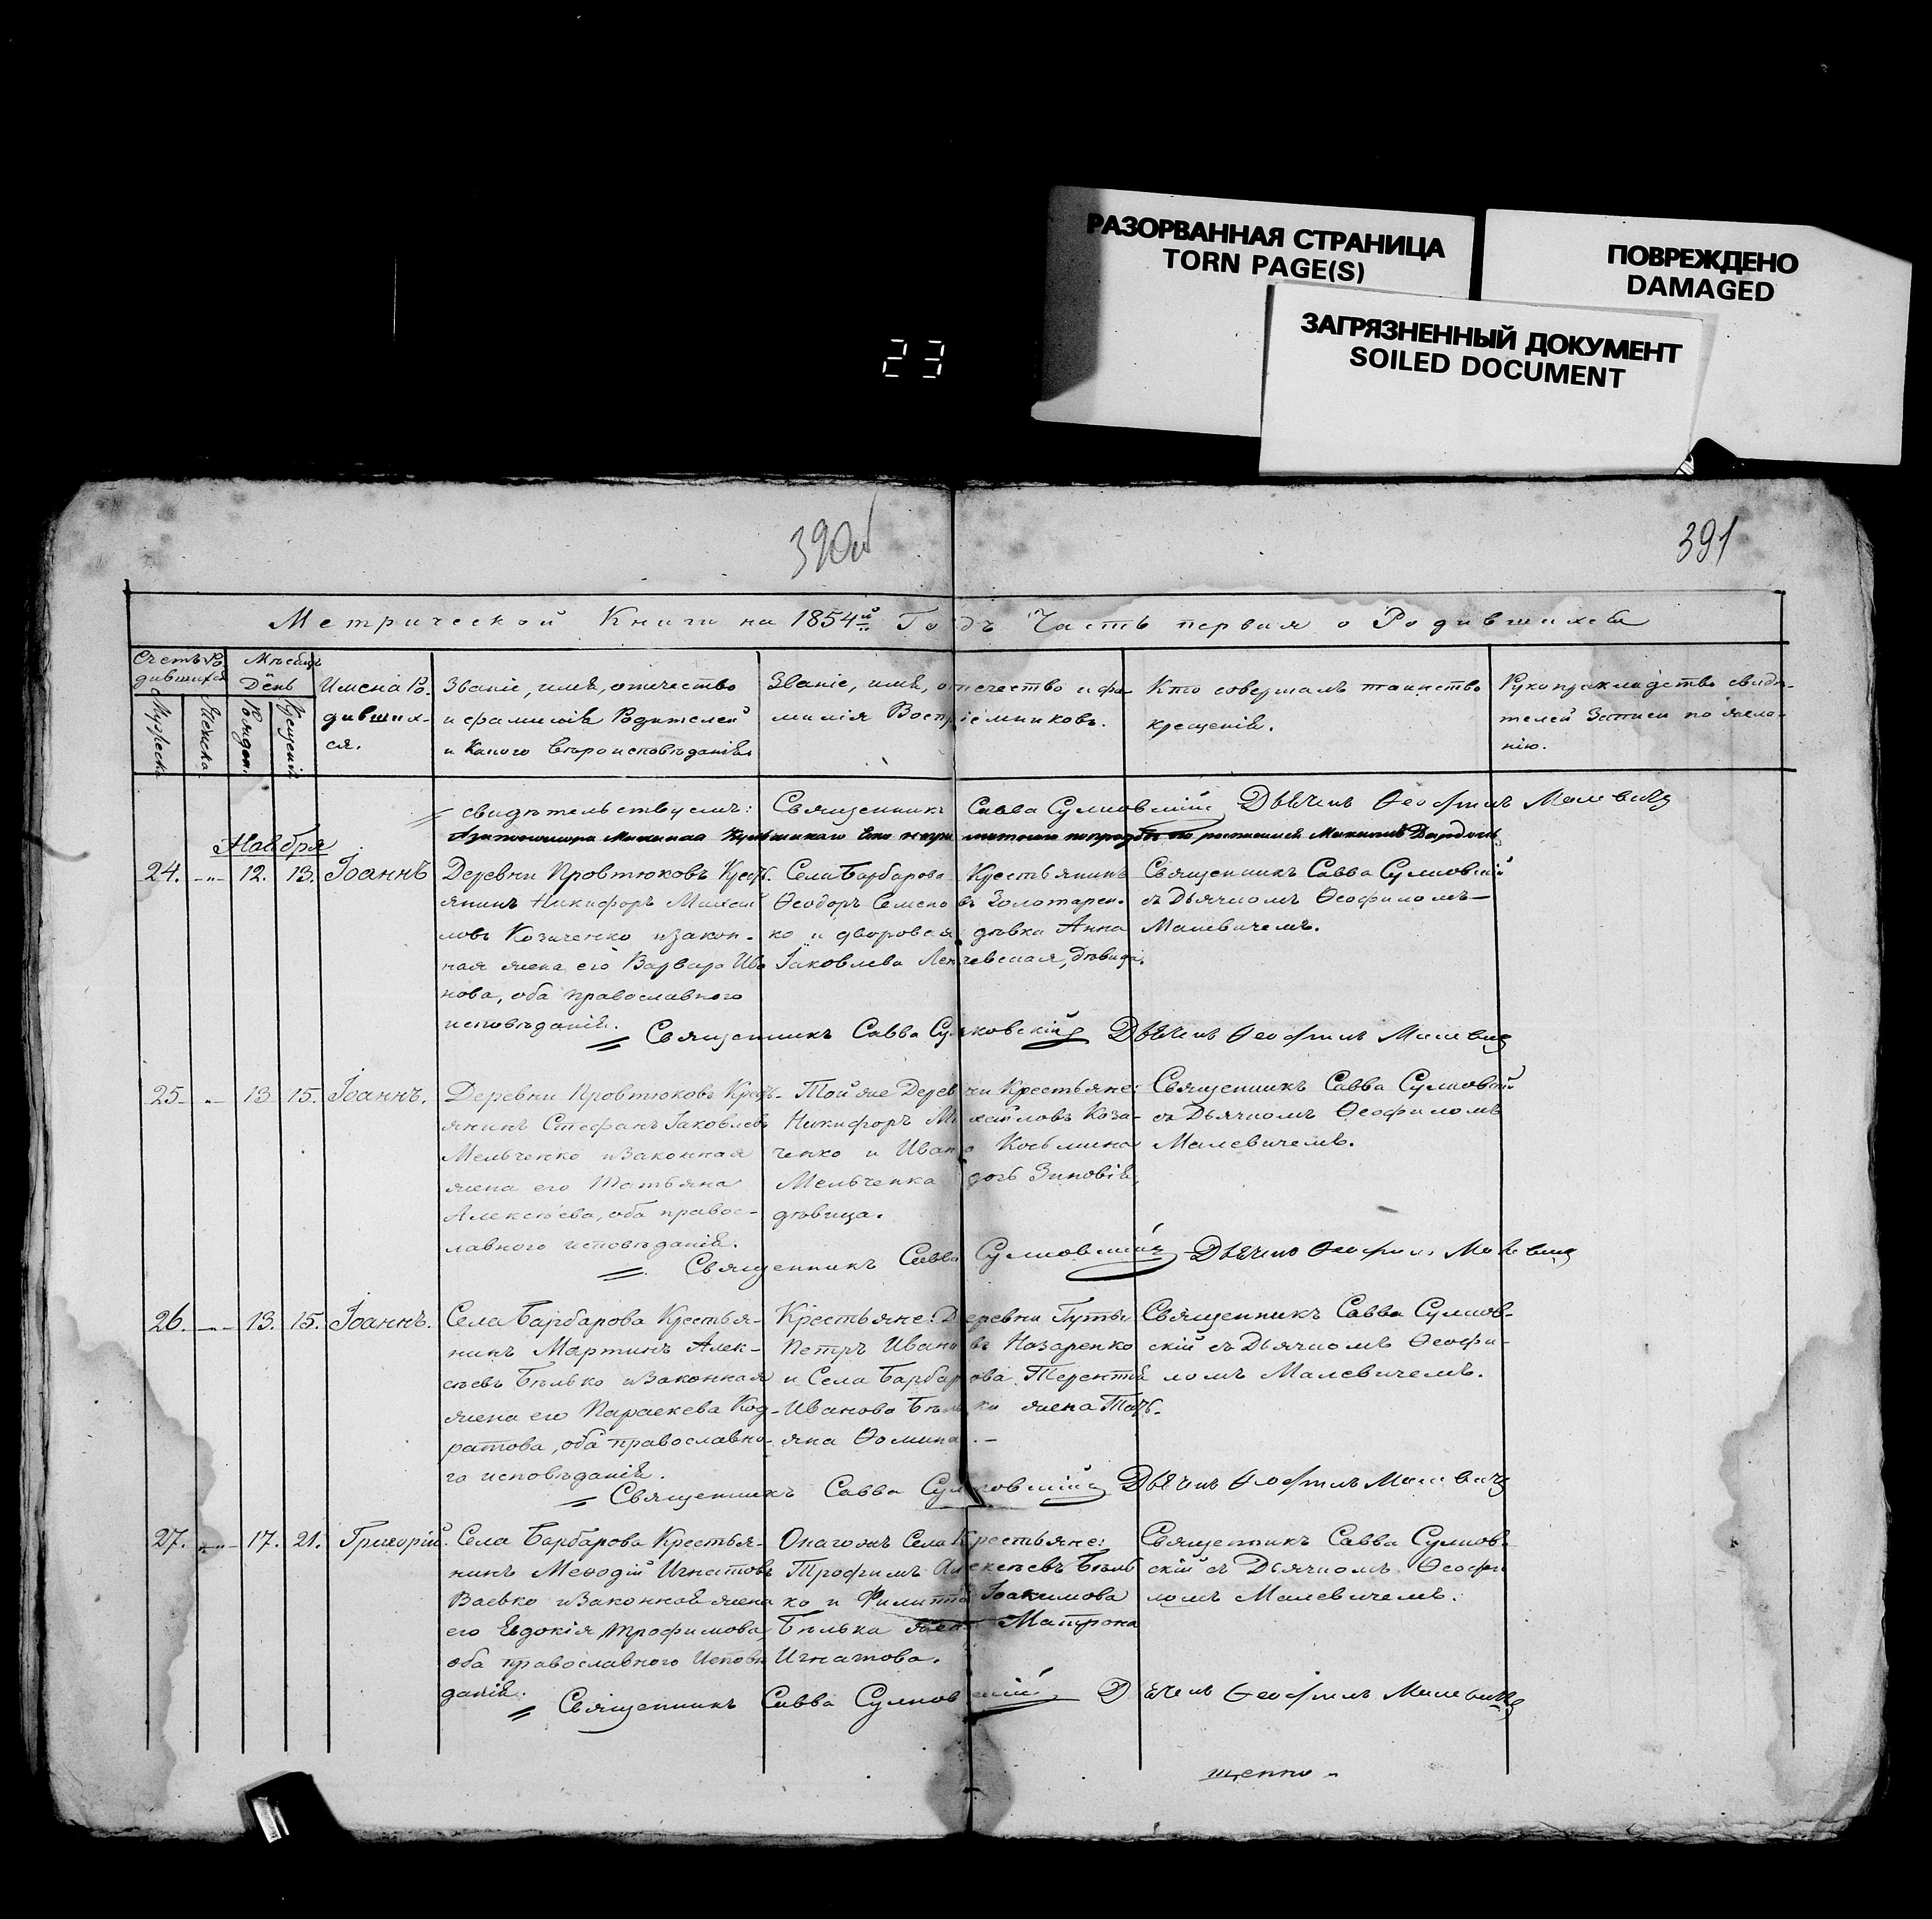 РАЗОРВАННАЯ СТРАНИЦА
TORN PAGE(S)
ПОВРЕЖДЕНО
DAMAGED
ЗАГРЯЗНЕННЫЙ ДОКУМЕНТ
SOILED DOCUMENT
23
390об
391
Метрической Книги на 1854й Годъ Часть первая о Родившихся
Счетъ Ро-
дившихся
Мужеска
Женска
Мѣсяцъ
День
Рожден.
Крещенія
Имена Ро-
дивших-
ся.
Званіе, имя, отчество
и фамилія Родителей
и какого вѣроисповѣданія.
Званіе, имя, отчество и фа-
милія Воспріемниковъ.
Кто совершалъ таинство
крещенія.
Рукоприкладство свидѣ-
телей записи по жела-
нію.
свидѣтельствуемъ: Священникъ Савва Сулковскій Дьячекъ Ѳеофилъ Малевичъ
Ноября
24. 12. 13. Іоаннъ
Деревни Провтюковъ Кресть-
янинъ Никифоръ Михай-
ловъ Козаченко и закон-
ная жена его Варвара Ива
нова, оба православного
исповѣданія.
Села Барбарова Крестьянинъ
Ѳеодоръ Семеновъ Золотарен-
ко и дворовая дѣвка Анна
Іаковлева дѣвица.
Священникъ Савва Сулковскій
съ Дьячкомъ Ѳеофиломъ
Малевичемъ.
Священникъ Савва Сулковскій Дьячекъ Ѳеофилъ Малевичъ
25. 13 15. Іоаннъ.
Деревни Провтюковъ Кресть-
янинъ Стефанъ Іаковлевъ
Мельченко и законная
жена его Татьяна
Алексѣева, оба правос-
лавного исповѣданія.
Той же Деревни Крестьяне:
Никифоръ Михайловъ Коза-
ченко и Ивана Косьмина
Мельченка дочь Зиновія,
дѣвица.
Священникъ Савва Сулковскій
съ Дьячкомъ Ѳеофиломъ
Малевичемъ.
Священникъ Савва Сулковскій Дьячекъ Ѳеофилъ Малевичъ
26. 13. 15. Іоаннъ.
Села Барбарова Крестья-
нинъ Мартинъ Алек-
сѣевъ Бѣлько и законная
жена его Параскева Код-
ратова, оба православно-
го исповѣданія.
Крестьяне: Деревни Гуты
Петръ Ивановъ Назаренко
и Села Барбарова Терентія
Иванова Бѣлька жена Тать-
яна Ѳомина.
Священникъ Савва Сулков-
скій съ Дьячкомъ Ѳеофи-
ломъ Малевичемъ.
Священникъ Савва Сулковскій Дьячекъ Ѳеофилъ Малевичъ
27. 17. 21. Григорій.
Села Барбарова Крестья-
нинъ Меѳодій Игнатовъ
Васько и законная жена
его Евдокія Трофимова,
оба православного исповѣ
данія.
Онагожъ Села Крестьяне:
Трофимъ Алексѣевъ Бѣль
ко и Филиппа Іоакимова
Бѣлька жена Матрона
Игнатова.
Священникъ Савва Сулков
скій съ Дьячкомъ Ѳеофи
ломъ Малевичемъ.
Священникъ Савва Сулковскій Дьячекъ Ѳеофилъ Малевичъ
щенно